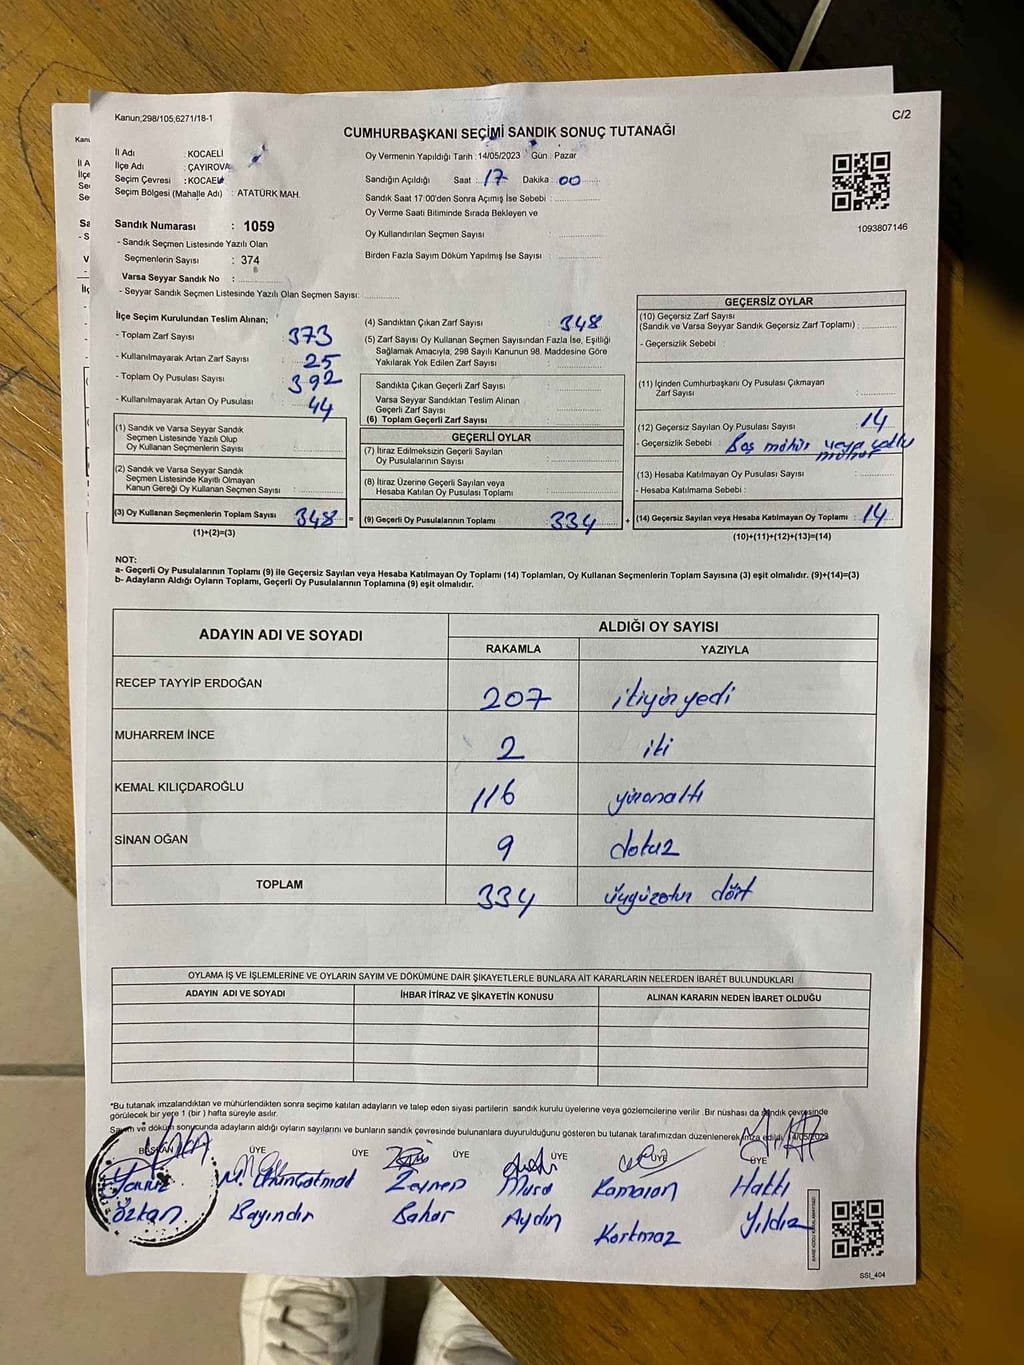 Kanun,298/105,6271/18-1
C/2
CUMHURBAŞKANI SEÇİMİ SANDIK SONUÇ TUTANAĞI
İl Adı : KOCAELİ
İlçe Adı : ÇAYIROVA
Seçim Çevresi : KOCAELİ
Seçim Bölgesi (Mahalle Adı) : ATATÜRK MAH.
Oy Vermenin Yapıldığı Tarih : 14/05/2023 Gün : Pazar
Sandığın Açıldığı Saat : 17 Dakika : 00
Sandık Saat 17:00'den Sonra Açılmış İse Sebebi :
Oy Verme Saati Bitiminde Sırada Bekleyen ve
Oy Kullandırılan Seçmen Sayısı :
Birden Fazla Sayım Döküm Yapılmış İse Sayısı :
1093807146
Sandık Numarası : 1059
- Sandık Seçmen Listesinde Yazılı Olan
Seçmenlerin Sayısı : 374
Varsa Seyyar Sandık No :
- Seyyar Sandık Seçmen Listesinde Yazılı Olan Seçmen Sayısı:
İlçe Seçim Kurulundan Teslim Alınan;
- Toplam Zarf Sayısı : 373
- Kullanılmayarak Artan Zarf Sayısı : 25
- Toplam Oy Pusulası Sayısı : 392
- Kullanılmayarak Artan Oy Pusulası : 44
(1) Sandık ve Varsa Seyyar Sandık
Seçmen Listesinde Yazılı Olup
Oy Kullanan Seçmenlerin Sayısı :
(2) Sandık ve Varsa Seyyar Sandık
Seçmen Listesinde Kayıtlı Olmayan
Kanun Gereği Oy Kullanan Seçmen Sayısı :
(3) Oy Kullanan Seçmenlerin Toplam Sayısı 348 =
(1)+(2)=(3)
(4) Sandıktan Çıkan Zarf Sayısı : 348
(5) Zarf Sayısı Oy Kullanan Seçmen Sayısından Fazla İse, Eşitliği
Sağlamak Amacıyla, 298 Sayılı Kanunun 98. Maddesine Göre
Yakılarak Yok Edilen Zarf Sayısı :
Sandıkta Çıkan Geçerli Zarf Sayısı :
Varsa Seyyar Sandıktan Teslim Alınan
Geçerli Zarf Sayısı :
(6) Toplam Geçerli Zarf Sayısı :
GEÇERLİ OYLAR
(7) İtiraz Edilmeksizin Geçerli Sayılan
Oy Pusulalarının Sayısı :
(8) İtiraz Üzerine Geçerli Sayılan veya
Hesaba Katılan Oy Pusulası Toplamı :
(9) Geçerli Oy Pusulalarının Toplamı 334 +
GEÇERSİZ OYLAR
(10) Geçersiz Zarf Sayısı
(Sandık ve Varsa Seyyar Sandık Geçersiz Zarf Toplamı) :
- Geçersizlik Sebebi :
(11) İçinden Cumhurbaşkanı Oy Pusulası Çıkmayan
Zarf Sayısı :
(12) Geçersiz Sayılan Oy Pusulası Sayısı : 14
- Geçersizlik Sebebi : Boş mühür veya çoklu
mühür
(13) Hesaba Katılmayan Oy Pusulası Sayısı :
- Hesaba Katılmama Sebebi :
(14) Geçersiz Sayılan veya Hesaba Katılmayan Oy Toplamı : 14
(10)+(11)+(12)+(13)=(14)
NOT:
a- Geçerli Oy Pusulalarının Toplamı (9) ile Geçersiz Sayılan veya Hesaba Katılmayan Oy Toplamı (14) Toplamları, Oy Kullanan Seçmenlerin Toplam Sayısına (3) eşit olmalıdır. (9)+(14)=(3)
b- Adayların Aldığı Oyların Toplamı, Geçerli Oy Pusulalarının Toplamına (9) eşit olmalıdır.
ADAYIN ADI VE SOYADI
ALDIĞI OY SAYISI
RAKAMLA YAZIYLA
RECEP TAYYİP ERDOĞAN 207 ikiyüzyedi
MUHARREM İNCE 2 iki
KEMAL KILIÇDAROĞLU 116 yüzonaltı
SİNAN OĞAN 9 dokuz
TOPLAM 334 üçyüzotuz dört
OYLAMA İŞ VE İŞLEMLERİNE VE OYLARIN SAYIM VE DÖKÜMÜNE DAİR ŞİKAYETLERLE BUNLARA AİT KARARLARIN NELERDEN İBARET BULUNDUKLARI
ADAYIN ADI VE SOYADI İHBAR İTİRAZ VE ŞİKAYETİN KONUSU ALINAN KARARIN NEDEN İBARET OLDUĞU
*Bu tutanak imzalandıktan ve mühürlendikten sonra seçime katılan adayların ve talep eden siyasi partilerin sandık kurulu üyelerine veya gözlemcilerine verilir .Bir nüshası da sandık çevresinde
görülecek bir yere 1 (bir ) hafta süreyle asılır.
Sayım ve döküm sonucunda adayların aldığı oyların sayılarını ve bunların sandık çevresinde bulunanlara duyurulduğunu gösteren bu tutanak tarafımızdan düzenlenerek imza edildi. 14/05/2023
BAŞKAN ÜYE ÜYE ÜYE ÜYE ÜYE ÜYE
Yavuz Zeynep Murat Kamaran Hakkı
Özkan Bayındır Bahar Aydın Korkmaz Yıldız
SSI_404